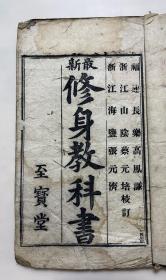 福建長樂高鳳謙
浙江山陰蔡元培校訂
浙江海鹽張元濟
最新
修身教科書
至寶堂